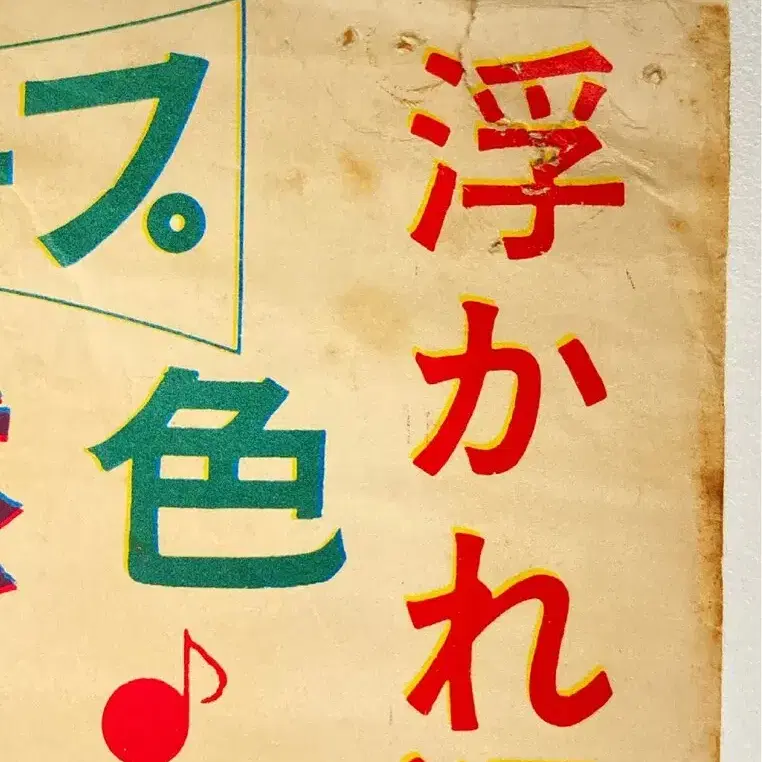 浮かれ
プ
色